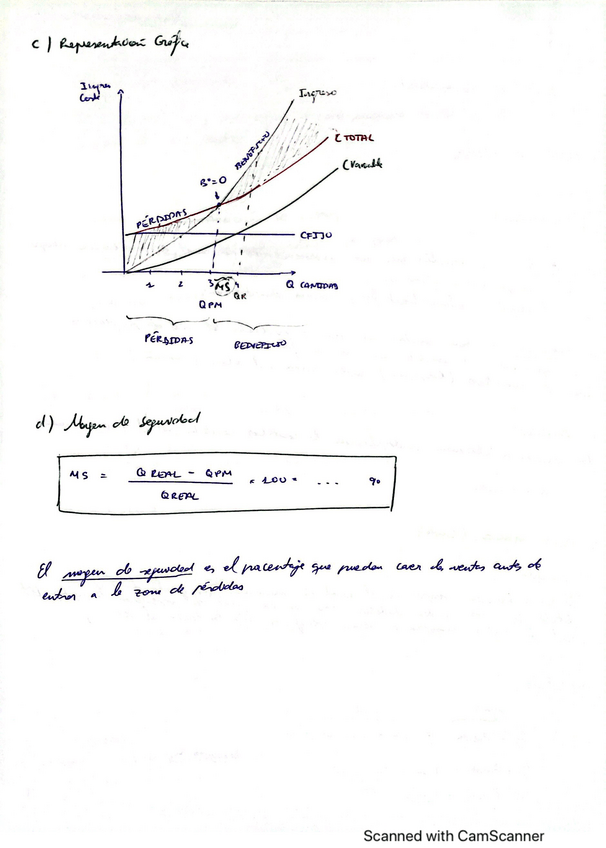 c) Representación Gráfica
Ingreso
Coste
Ingreso
C TOTAL
C Variable
BENEFICIO
Bº=0
PÉRDIDAS
CFIJO
1 2 3 MS 4 Q CANTIDAD
QR
QPM
PÉRDIDAS BENEFICIO
d) Margen de seguridad
MS = Q REAL - QPM × 100 = ... %
Q REAL
El margen de seguridad es el porcentaje que pueden caer las ventas antes de
entrar a la zona de pérdidas
Scanned with CamScanner